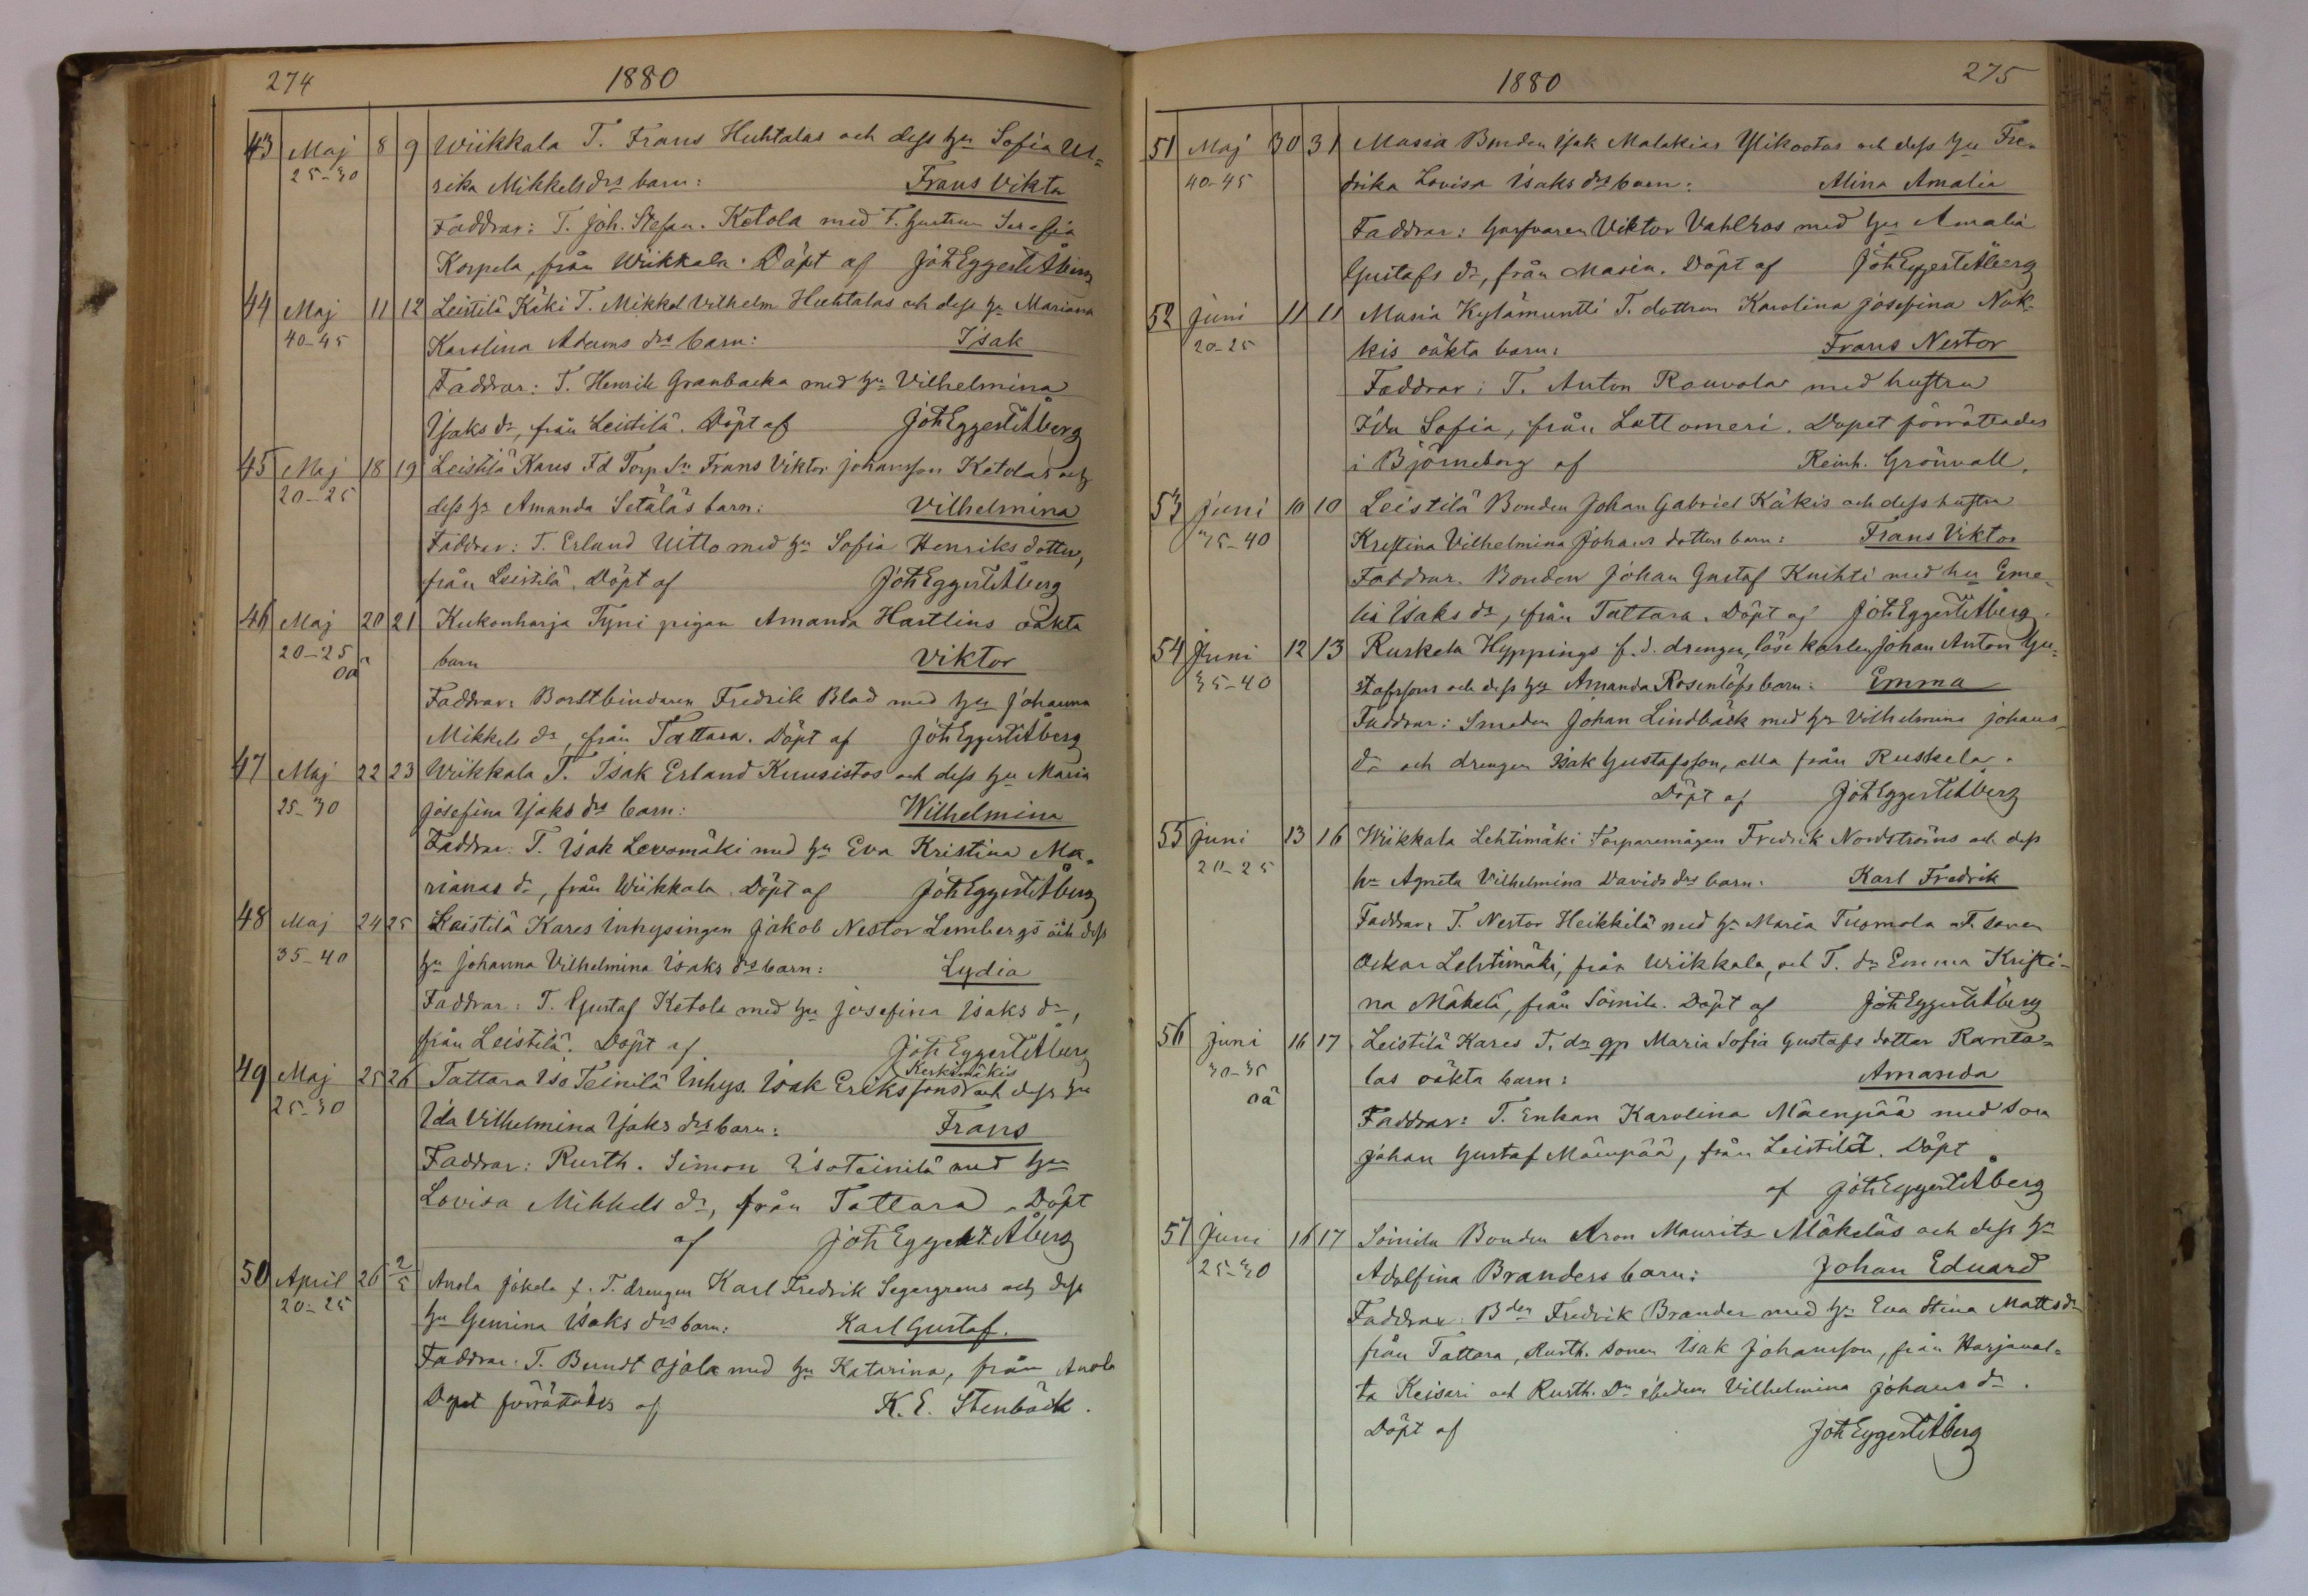 274 1880
43 Maj 8 9 Wiikkala T. Frans Huhtalas och dess hu Sofia Ul=
25-30 rika Mikkels drs barn: Frans Vikto
Faddrar: T. Joh. Stefan. Ketola med T. hustrun Serafia
Korpela, från Wiikkala. Döpt af Joh Eggert Åberg
44 Maj 11 12 Leistilä Käki T. Mikkel Vilhelm Huhtalas och dess hu Mariana
40-45 Karolina Adams drs barn: Isak
Faddrar: T. Henrik Granbacka med hu Vilhelmina
Isaks dr, från Leistilä. Döpt af Joh Eggert Åberg
45 Maj 18 19 Leistilä Kares Fd Torp. Sn Frans Viktor Johansson Ketolas och
20-25 dess hu Amanda Setäläs barn: Vilhelmina
Faddrar: T. Erland Uitto med hu Sofia Henriks dotter,
från Leistilä. Döpt af Joh Eggert Åberg
46 Maj 20 21 Kukonharja Tyni pigan Amanda Hartlins oäkta
20-25 barn Viktor
oä
Faddrar: Borstbindaren Fredrik Blad med hu Johanna
Mikkels dr, från Tattara. Döpt af Joh Eggert Åberg
47 Maj 22 23 Wiikkala T. Isak Erland Kuusistos och dess hu Maria
25-30 Josefina Isaks drs barn: Wilhelmina
Faddrar: T. Isak Levomäki med hu Eva Kristina Ma=
rianas dr, från Wiikkala. Döpt af Joh Eggert Åberg
48 Maj 24 25 Leistilä Kares Inhysingen Jakob Nestor Lembergs och dess
35-40 hu Johanna Vilhelmina Isaks drs barn: Lydia
Faddrar: T. Gustaf Ketola med hu Josefina Isaks dr,
från Leistilä. Döpt af Joh Eggert Åberg
Kerkömäkis
49 Maj 25 26 Tattara Iso Teinilä Inhys. Isak Erikssons och dess hu
25-30 Ida Vilhelmina Isaks drs barn: Frans
Faddrar: Rusth. Simon IsoTeinilä med hu
Lovisa Mikkels dr, från Tattara. Döpt
af Joh Eggert Åberg
50 April 26 2/5 Anola Jokela f. T. drengen Karl Fredrik Segergrens och dess
20-25 hu Gemina Isaks drs barn: Karl Gustaf.
Faddrar: T. Berndt Ojala med hu Katarina, från Anola
Dopet förrättades af K. E. Stenbäck.
1880 275
51 Maj 30 31 Masia Bonden Isak Malakias Ylikootas och dess hu Fre=
40-45 drika Lovisa Isaks drs barn: Alina Amalia
Faddrar: Garfvaren Viktor Vahlros med hu Amalia
Gustafs dr, från Masia. Döpt af Joh Eggert Åberg
52 Juni 11 11 Masia Kylämuntti T. dottren Karolina Josefina Nok=
20-25 kis oäkta barn: Frans Nestor
Faddrar: T. Anton Rauvola med hustru
Ida Sofia, från Lattomeri. Dopet förrättades
i Björneborg af Reinh. Grönvall.
53 Juni 10 10 Leistilä Bonden Johan Gabriel Käkis och dess hustru
35-40 Kristina Vilhelmina Johans dotters barn: Frans Viktor
Faddrar. Bonden Johan Gustaf Knihti med hu Eme=
lia Isaks dr, från Tattara. Döpt af Joh Eggert Åberg.
54 Juni 12 13 Ruskela Hyppings f. d. drengen, löse karlen Johan Anton Gu=
35-40 stafssons och dess hu Amanda Rosenlöfs barn: Emma
Faddrar: Smeden Johan Lindbäck med hu Vilhelmina Johans=
dr och drengen Isak Gustafsson, alla från Ruskela.
Döpt af Joh Eggert Åberg
55 Juni 13 16 Wiikkala Lehtimäki Torparemågen Fredrik Nordströms och dess
20-25 hu Agneta Vilhelmina Davids drs barn: Karl Fredrik
Faddrar: T. Nestor Heikkilä med hu Maria Tuomola T. sonen
Oskar Lehtimäki, från Wiikkala, och T. dr Emma Kristi=
na Mäkelä, från Soinila. Döpt af Joh Eggert Åberg
56 Juni 16 17 Leistilä Kares T. dr qp Maria Sofia Gustafs dotter Ranta=
30-35 las oäkta barn: Amanda
oä
Faddrar: T. Enkan Karolina Mäenpää med son
Johan Gustaf Mäenpää, från Leistilä. Döpt
af Joh Eggert Åberg
57 Juni 16 17 Soinila Bonden Aron Maurits Mäkeläs och dess hu
25-30 Adolfina Branders barn: Johan Eduard
Faddrar: Bden Fredrik Brander med hu Eva Stina Matts dr
från Tattara, Rusth. sonen Isak Johansson, från Harjaval=
ta Keisari och Rusth. Dr ibidem Vilhelmina Johans dr.
Döpt af Joh Eggert Åberg